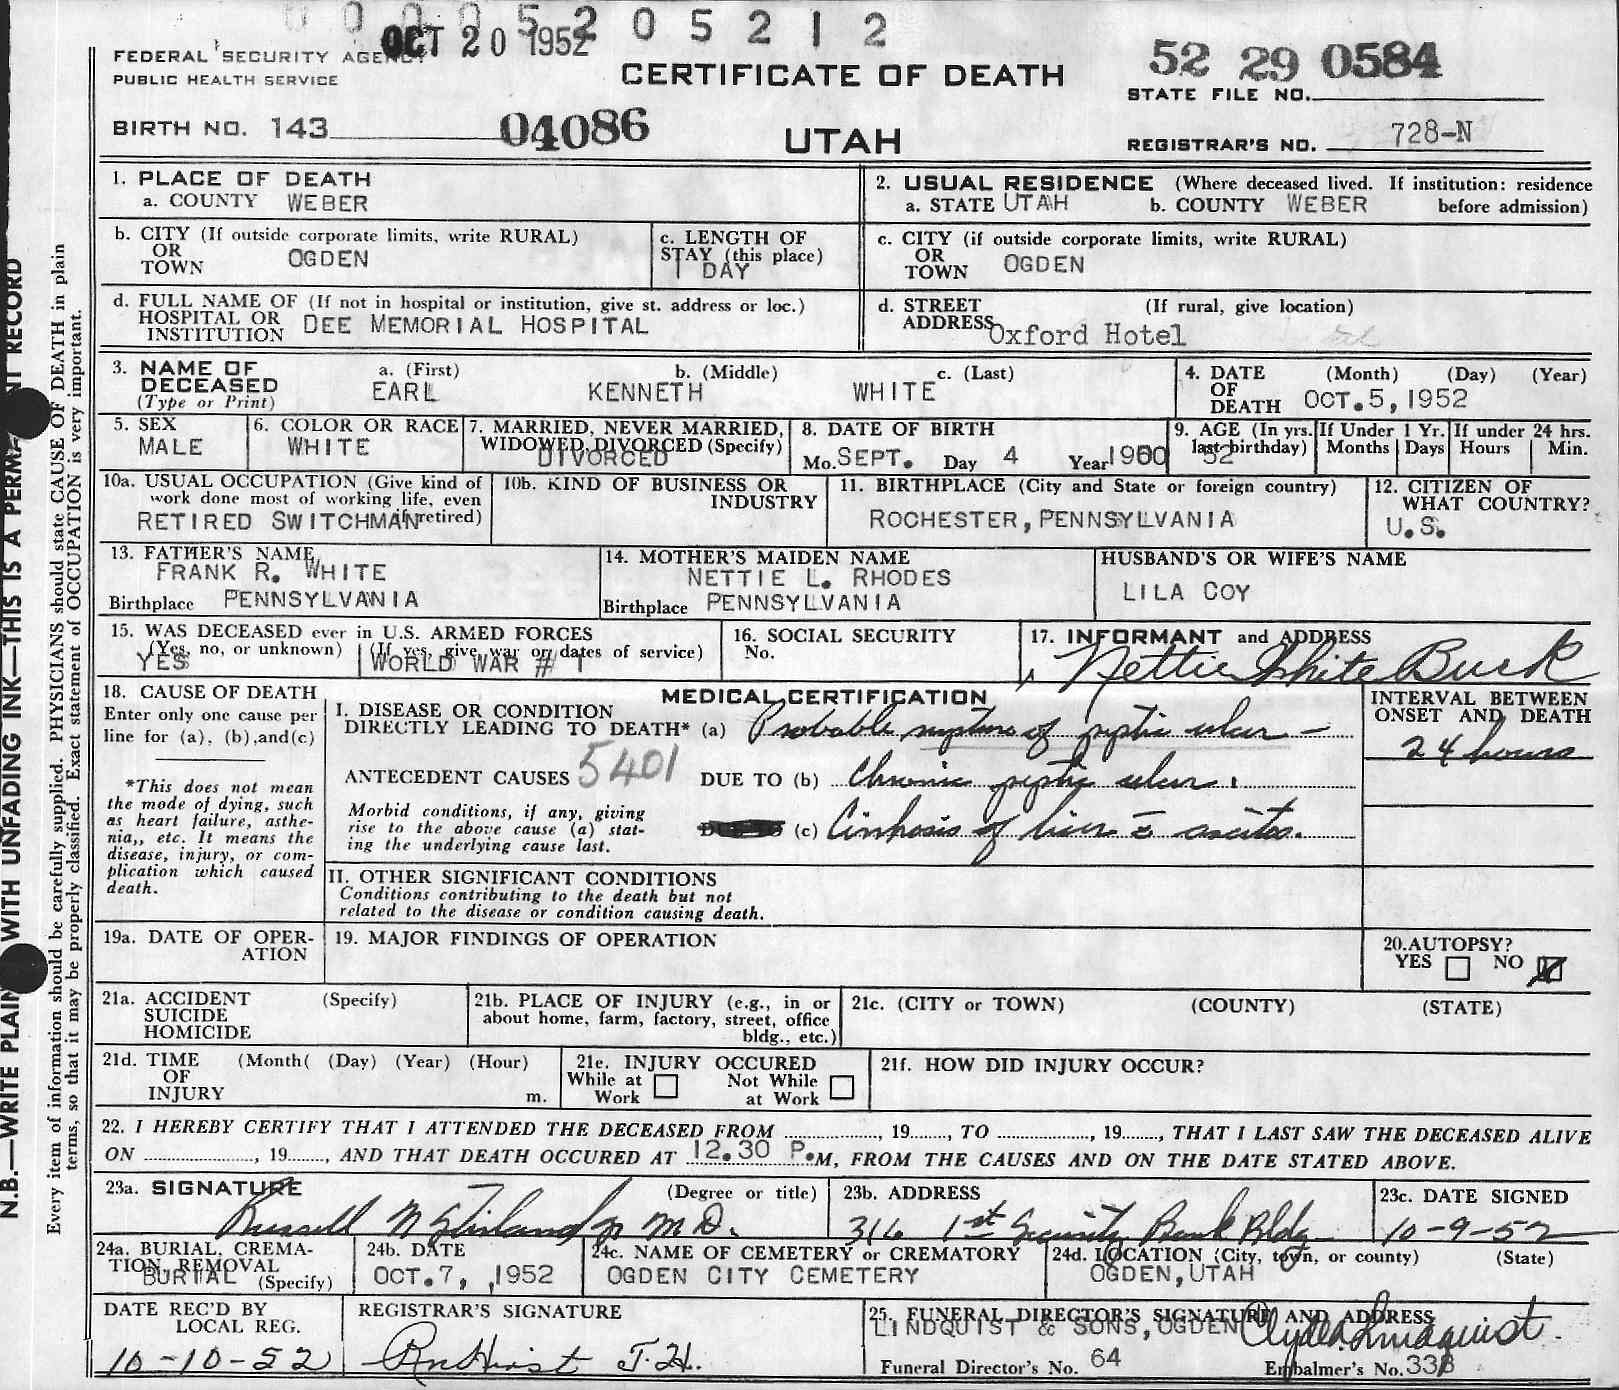 0 0 0 0 5 2 0 5 2 1 2
OCT 20 1952
FEDERAL SECURITY AGENCY
PUBLIC HEALTH SERVICE
CERTIFICATE OF DEATH
52 29 0584
STATE FILE NO.
BIRTH NO. 143 04086
UTAH
REGISTRAR'S NO. 728-N
1. PLACE OF DEATH
a. COUNTY WEBER
2. USUAL RESIDENCE (Where deceased lived. If institution: residence before admission)
a. STATE UTAH b. COUNTY WEBER
b. CITY (If outside corporate limits, write RURAL)
OR TOWN OGDEN
c. LENGTH OF STAY (this place)
1 DAY
c. CITY (if outside corporate limits, write RURAL)
OR TOWN OGDEN
d. FULL NAME OF (If not in hospital or institution, give st. address or loc.)
HOSPITAL OR INSTITUTION DEE MEMORIAL HOSPITAL
d. STREET ADDRESS (If rural, give location)
Oxford Hotel
3. NAME OF DECEASED
(Type or Print)
a. (First) b. (Middle) c. (Last)
EARL KENNETH WHITE
4. DATE OF DEATH (Month) (Day) (Year)
OCT.5,1952
5. SEX
MALE
6. COLOR OR RACE
WHITE
7. MARRIED, NEVER MARRIED, WIDOWED, DIVORCED (Specify)
DIVORCED
8. DATE OF BIRTH
Mo. SEPT. Day 4 Year 1900
9. AGE (In yrs. last birthday)
52
If Under 1 Yr.
Months Days
If under 24 hrs.
Hours Min.
10a. USUAL OCCUPATION (Give kind of work done most of working life, even if retired)
RETIRED SWITCHMAN
10b. KIND OF BUSINESS OR INDUSTRY
11. BIRTHPLACE (City and State or foreign country)
ROCHESTER, PENNSYLVANIA
12. CITIZEN OF WHAT COUNTRY?
U.S.
13. FATHER'S NAME
FRANK R. WHITE
Birthplace PENNSYLVANIA
14. MOTHER'S MAIDEN NAME
NETTIE L. RHODES
Birthplace PENNSYLVANIA
HUSBAND'S OR WIFE'S NAME
LILA COY
15. WAS DECEASED ever in U.S. ARMED FORCES
(Yes, no, or unknown) (If yes, give war or dates of service)
YES WORLD WAR # 1
16. SOCIAL SECURITY
No.
17. INFORMANT and ADDRESS
Nettie White Buck
18. CAUSE OF DEATH
Enter only one cause per line for (a), (b), and (c)
*This does not mean
the mode of dying, such
as heart failure, asthe-
nia,, etc. It means the
disease, injury, or com-
plication which caused
death.
MEDICAL CERTIFICATION
I. DISEASE OR CONDITION
DIRECTLY LEADING TO DEATH* (a) Probable rupture of peptic ulcer -
ANTECEDENT CAUSES 5401 DUE TO (b) Chronic peptic ulcer.
Morbid conditions, if any, giving
rise to the above cause (a) stat-
ing the underlying cause last.
DUE TO (c) Cirrhosis of liver c̄ ascites.
INTERVAL BETWEEN ONSET AND DEATH
24 hours
II. OTHER SIGNIFICANT CONDITIONS
Conditions contributing to the death but not
related to the disease or condition causing death.
19a. DATE OF OPER-
ATION
19. MAJOR FINDINGS OF OPERATION
20. AUTOPSY?
YES NO X
21a. ACCIDENT (Specify)
SUICIDE
HOMICIDE
21b. PLACE OF INJURY (e.g., in or
about home, farm, factory, street, office
bldg., etc.)
21c. (CITY or TOWN) (COUNTY) (STATE)
21d. TIME (Month( (Day) (Year) (Hour)
OF
INJURY m.
21e. INJURY OCCURED
While at Work Not While at Work
21f. HOW DID INJURY OCCUR?
22. I HEREBY CERTIFY THAT I ATTENDED THE DECEASED FROM ........, 19......, TO ........, 19......, THAT I LAST SAW THE DECEASED ALIVE
ON ........, 19......, AND THAT DEATH OCCURED AT 12.30 P.M, FROM THE CAUSES AND ON THE DATE STATED ABOVE.
23a. SIGNATURE (Degree or title)
Russell N Stirland Jr M.D.
23b. ADDRESS
316 1st Security Bank Bldg
23c. DATE SIGNED
10-9-52
24a. BURIAL, CREMA-
TION, REMOVAL
BURIAL (Specify)
24b. DATE
OCT.7, ,1952
24c. NAME OF CEMETERY or CREMATORY
OGDEN CITY CEMETERY
24d. LOCATION (City, town, or county) (State)
OGDEN, UTAH
DATE REC'D BY
LOCAL REG.
10-10-52
REGISTRAR'S SIGNATURE
25. FUNERAL DIRECTOR'S SIGNATURE AND ADDRESS
LINDQUIST & SONS, OGDEN Clyde Lindquist.
Funeral Director's No. 64 Embalmer's No. 338
N.B.—WRITE PLAINLY WITH UNFADING INK—THIS IS A PERMANENT RECORD
Every item of information should be carefully supplied. PHYSICIANS should state CAUSE OF DEATH in plain
terms, so that it may be properly classified. Exact statement of OCCUPATION is very important.